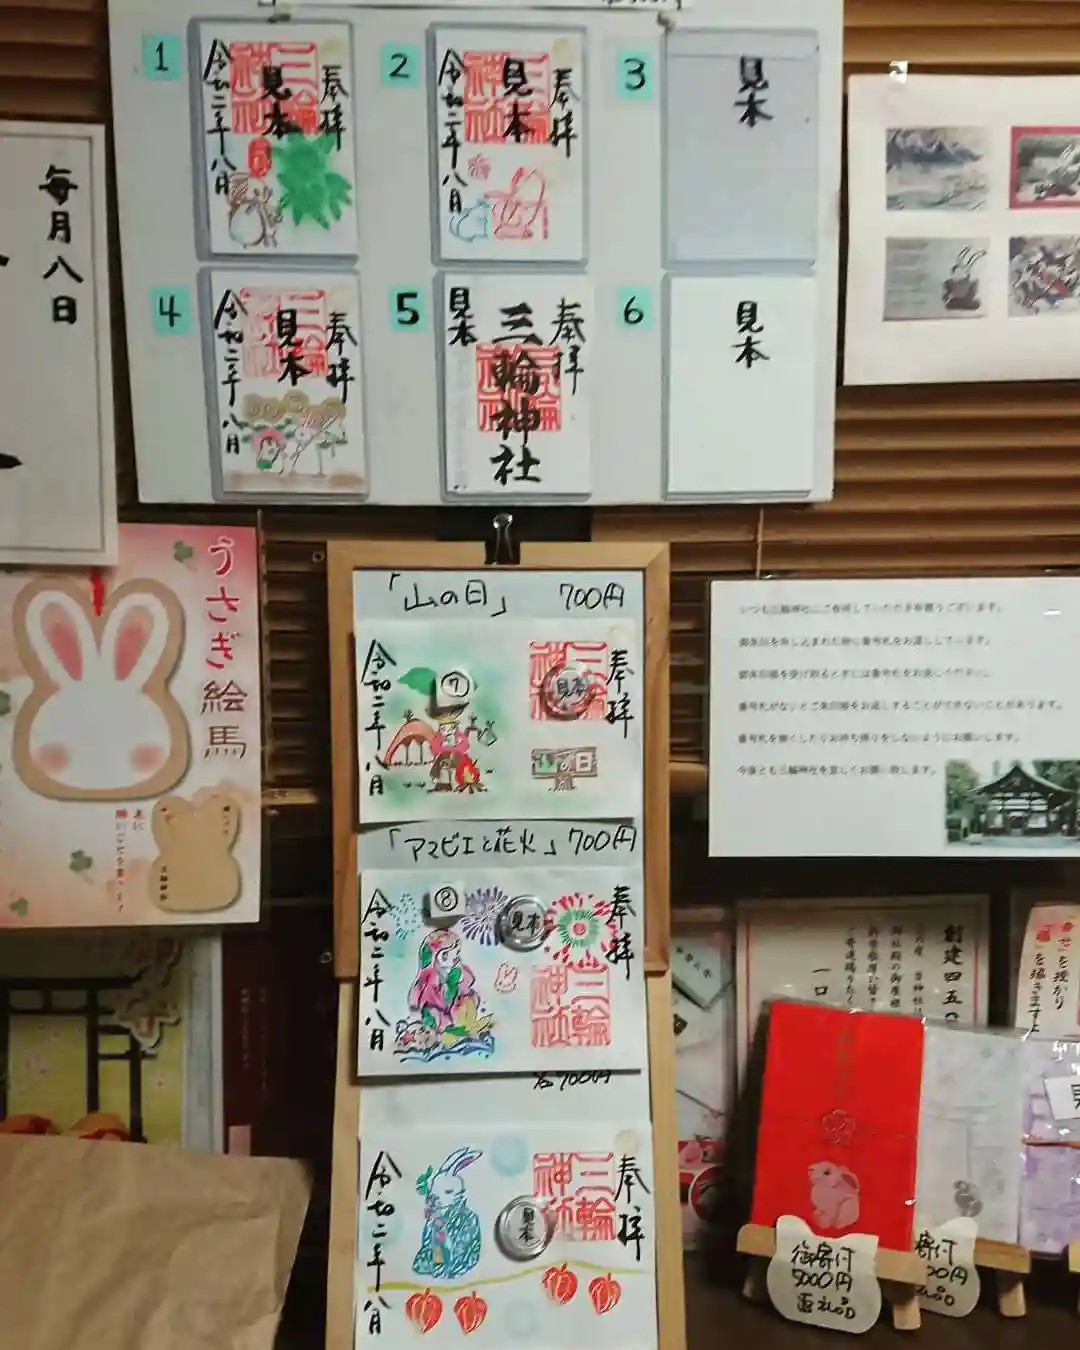 1
奉拝
見本
三輪神社
令和二年八月
2
奉拝
見本
三輪神社
令和二年八月
3
見本
4
奉拝
見本
三輪神社
令和二年八月
5
奉拝
三輪神社
見本
6
見本
毎月八日
うさぎ絵馬
「山の日」 700円
奉拝
三輪神社
見本
⑦
山の日
令和二年八月
「アマビエと花火」700円
奉拝
三輪神社
見本
⑧
令和二年八月
700円
奉拝
三輪神社
見本
令和二年八月
いつも三輪神社にご参拝していただき有難うございます。
御朱印を申し込まれた時に番号札をお渡ししています。
御朱印帳を受け取るときには番号札をお返しください。
番号札がないとご朱印帳をお返しすることができないことがあります。
番号札を無くしたりお持ち帰りをしないようにお願いします。
今後とも三輪神社を宜しくお願い致します。
創建四五〇
一口
幸せ」を授かり
「福」を描きますよ
御寄付
5000円
返礼品
寄付
00円
礼品
見